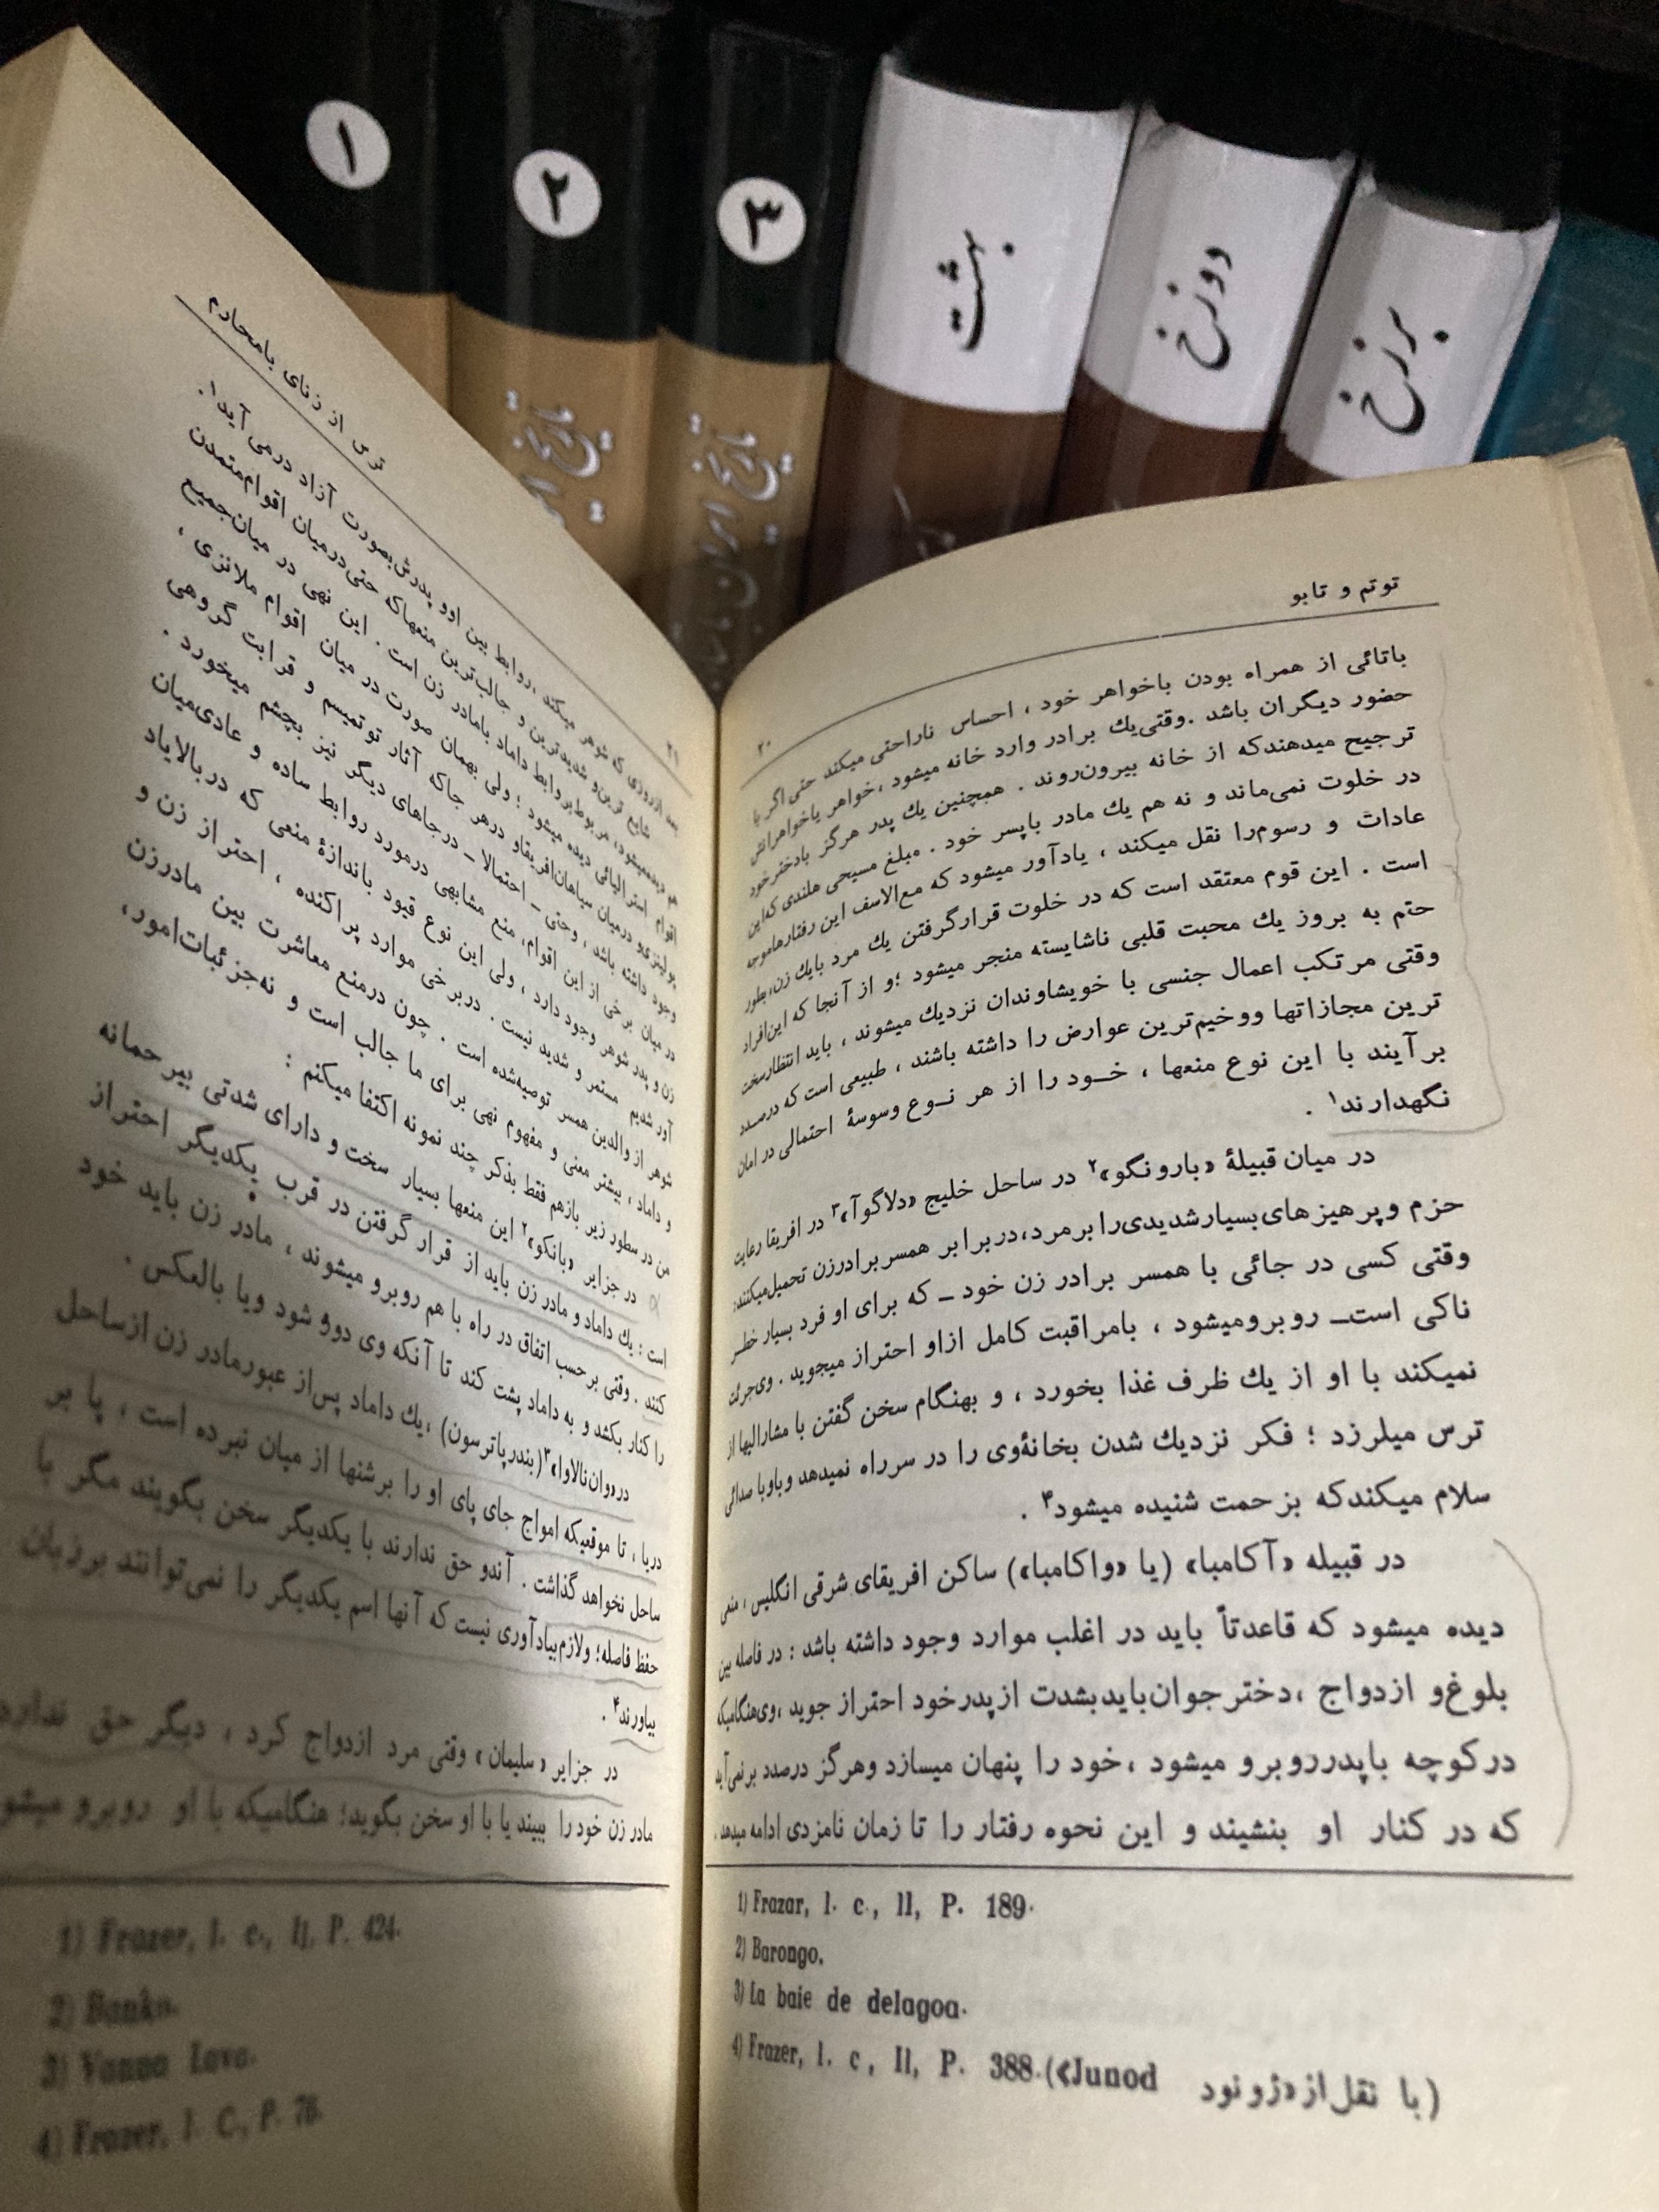 ۱
۲
۳
بهشت
دوزخ
برزخ
تاریخ
تاریخ ایران
توتم و تابو
۲۰
باتائی از همراه بودن باخواهر خود ، احساس ناراحتی میکند حتی اگر با
حضور دیگران باشد . وقتی‌یك برادر وارد خانه میشود ، خواهر یاخواهرانش
ترجیح میدهندکه از خانه بیرون‌روند . همچنین یك پدر هرگز بادخترخود
در خلوت نمی‌ماند و نه هم یك مادر باپسر خود . مبلغ مسیحی هلندی که‌این
عادات و رسوم‌را نقل میکند ، یادآور میشود که مع‌الاسف این رفتارهاموجه
است . این قوم معتقد است که در خلوت قرارگرفتن یك مرد بایك زن،بطور
حتم به بروز یك محبت قلبی ناشایسته منجر میشود ؛و از آنجا که این‌افراد
وقتی مرتکب اعمال جنسی با خویشاوندان نزدیك میشوند ، باید انتظارسخت
ترین مجازاتها ووخیم‌ترین عوارض را داشته باشند ، طبیعی است که درصدد
برآیند با این نوع منعها ، خود را از هر نوع وسوسهٔ احتمالی در امان
نگهدارند۱ .
در میان قبیلهٔ «بارونگو»۲ در ساحل خلیج «دلاگوآ»۳ در افریقا رعایت
حزم و پرهیزهای‌بسیارشدیدی‌را برمرد،دربرابر همسربرادرزن تحمیل‌میکنند:
وقتی کسی در جائی با همسر برادر زن خود ــ که برای او فرد بسیار خطر
ناکی است‌ــ روبرومیشود ، بامراقبت کامل ازاو احتراز میجوید . وی‌جرئت
نمیکند با او از یك ظرف غذا بخورد ، و بهنگام سخن گفتن با مشارالیها از
ترس میلرزد ؛ فکر نزدیك شدن بخانهٔ‌وی را در سرراه نمیدهد وباوبا صدائی
سلام میکندکه بزحمت شنیده میشود۴ .
در قبیله «آکامبا» (یا «واکامبا») ساکن افریقای شرقی انگلیس ، منعی
دیده میشود که قاعدتاً باید در اغلب موارد وجود داشته باشد : در فاصله بین
بلوغ‌و ازدواج ،دخترجوان‌بایدبشدت ازپدرخود احتراز جوید ،وی‌هنگامیکه
درکوچه باپدرروبرو میشود ،خود را پنهان میسازد وهرگز درصدد برنمی‌آید
که در کنار او بنشیند و این نحوه رفتار را تا زمان نامزدی ادامه میدهد .
1) Frazar, l. c., II, P. 189.
2) Barongo.
3) La baie de delagoa.
4) Frazer, l. c, II, P. 388.(«Junod با نقل‌از«ژونود)
ترس از زنای بامحارم
۲۱
بعد ازروزی که شوهر میکند ،روابط بین اوو پدرش‌بصورت آزاد درمی آید۱.
شایع ترین‌و شدیدترین و جالب‌ترین منعهاکه حتی‌درمیان اقوام‌متمدن
هم دیده‌میشود، مربوط‌بروابط داماد بامادر زن است . این نهی در میان‌جمیع
اقوام استرالیائی دیده میشود ؛ ولی بهمان صورت در میان اقوام ملانزی ،
پولینزی‌و درمیان سیاهان‌افریقاو درهر جاکه آثار توتمیسم و قرابت گروهی
وجود داشته باشد ، وحتی ــ احتمالا ــ درجاهای دیگر نیز بچشم میخورد .
در میان برخی از این اقوام، منع مشابهی درمورد روابط ساده و عادی‌میان
زن و پدر شوهر وجود دارد ، ولی این نوع قیود باندازهٔ منعی که دربالایاد
آور شدیم مستمر و شدید نیست . دربرخی موارد پراکنده ، احتراز زن و
شوهر از والدین همسر توصیه‌شده است . چون درمنع معاشرت بین مادرزن
و داماد ، بیشتر معنی و مفهوم نهی برای ما جالب است و نه‌جزئیات‌امور،
من در سطور زیر بازهم فقط بذکر چند نمونه اکتفا میکنم :
در جزایر «بانکو»۲ این منعها بسیار سخت و دارای شدتی بیرحمانه
است : یك داماد و مادر زن باید از قرار گرفتن در قرب یکدیگر احتراز
کنند . وقتی برحسب اتفاق در راه با هم روبرو میشوند ، مادر زن باید خود
را کنار بکشد و به داماد پشت کند تا آنکه وی دور شود ویا بالعکس .
در«وان‌نالاوا»۳(بندرپاترسون) ،یك داماد پس‌از عبورمادر زن ازساحل
دریا ، تا موقعیکه امواج جای پای او را برشنها از میان نبرده است ، پا بر
ساحل نخواهد گذاشت . آندو حق ندارند با یکدیگر سخن بگویند مگر با
حفظ فاصله؛ ولازم‌بیادآوری نیست که آنها اسم یکدیگر را نمی‌توانند برزبان
بیاورند۴ .
در جزایر «سلیمان» وقتی مرد ازدواج کرد ، دیگر حق ندارد
مادر زن خود را ببیند یا با او سخن بگوید؛ هنگامیکه با او روبرو میشو
1) Frazer, l. c., II, P. 424.
2) Banks.
3) Vanna Lava.
4) Frazer, l. C, P. 76.